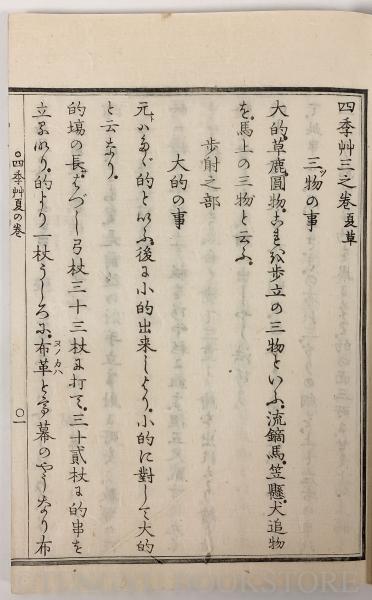 四季艸三之巻 夏草
三ッ物の事
大的。草鹿。圓物。これを歩立の三物といふ。流鏑馬。笠懸。犬追物
を。馬上の三物と云ふ。
歩射之部
大的の事
元ハたゞ的といふ。後に小的出来しより。小的に對して大的
と云なり。
的場の長さハづし弓杖三十三杖に打て。三十貳杖に的串を
立るなり。的より一杖うしろに。布革とて幕のやうなり布
ヌノカハ
○四季艸夏の巻
○一